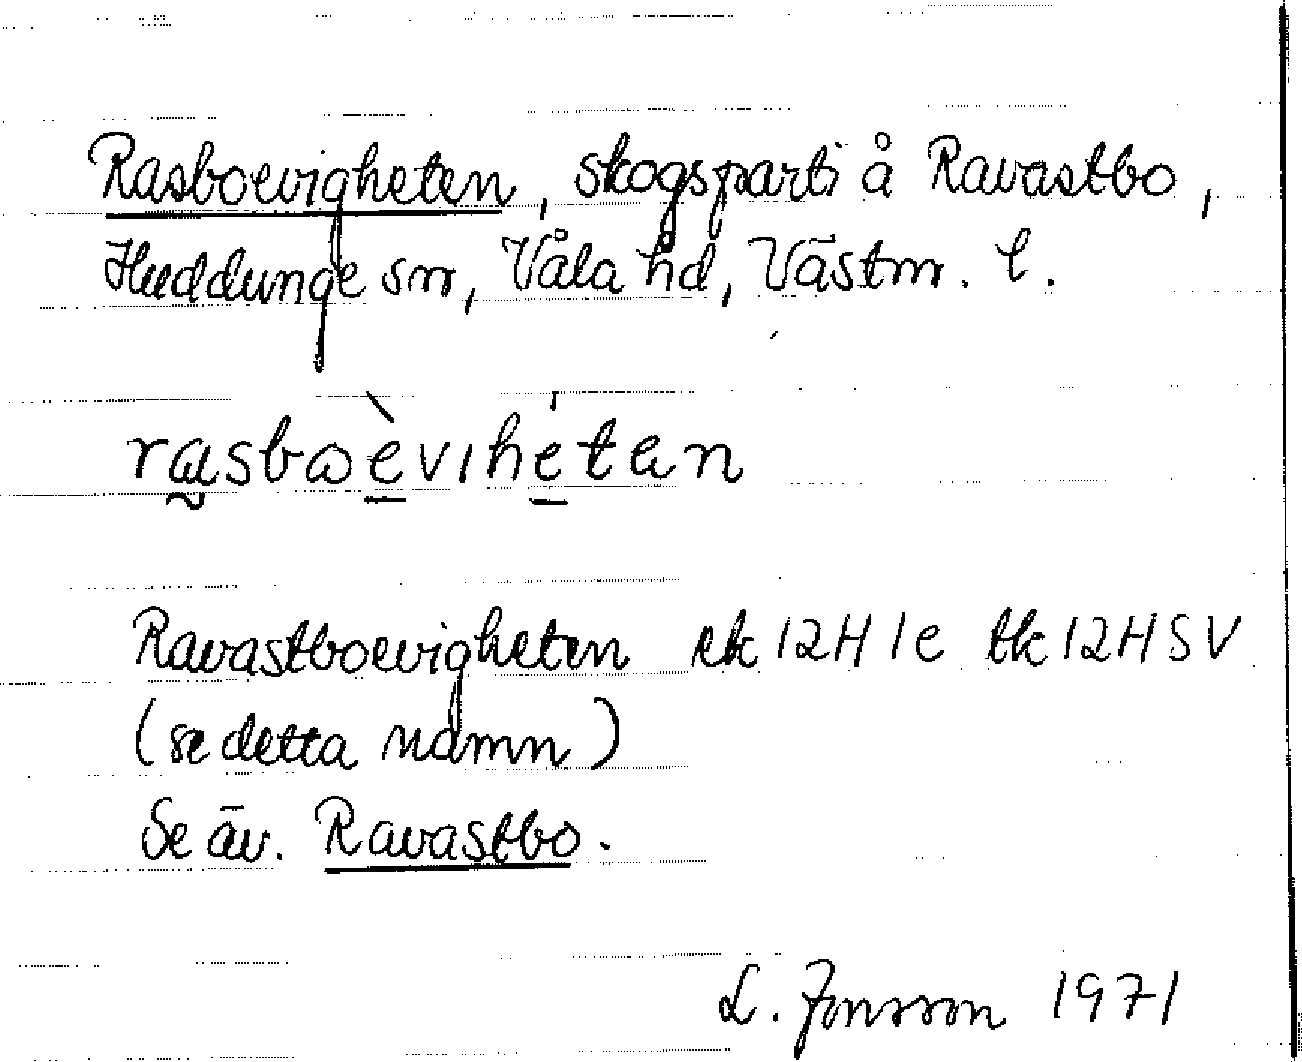 Rasboevigheten, skogsparti å Ravastbo,
Huddunge sn, Våla hd, Västm. l.
rasboèvihéten
Ravastboevigheten ek 12H 1e tk 12H SV
(se detta namn)
Se äv. Ravastbo.
L. Jonsson 1971